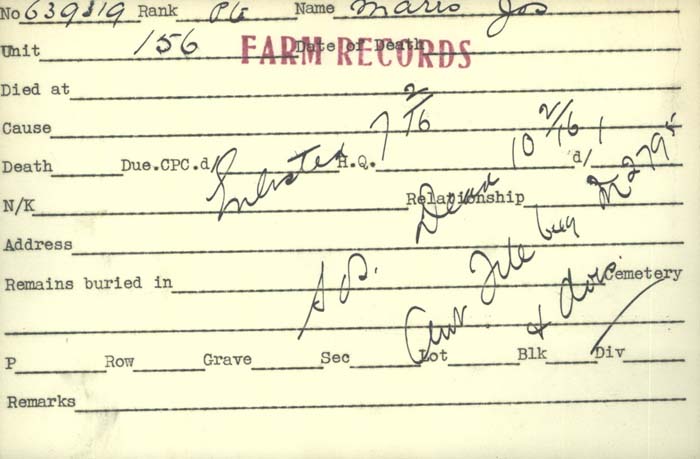 No 639819 Rank Pte Name Marro Jos
Unit 156 Date of Death
FARM RECORDS
Died at
Cause 7 2/16 10 2/16
Death Due.CPC.d/ H.Q. d/
Enlisted
N/K Relationship
Address
Remains buried in S D. Cemetery
& docs
P Row Grave Sec Lot Blk Div
Remarks